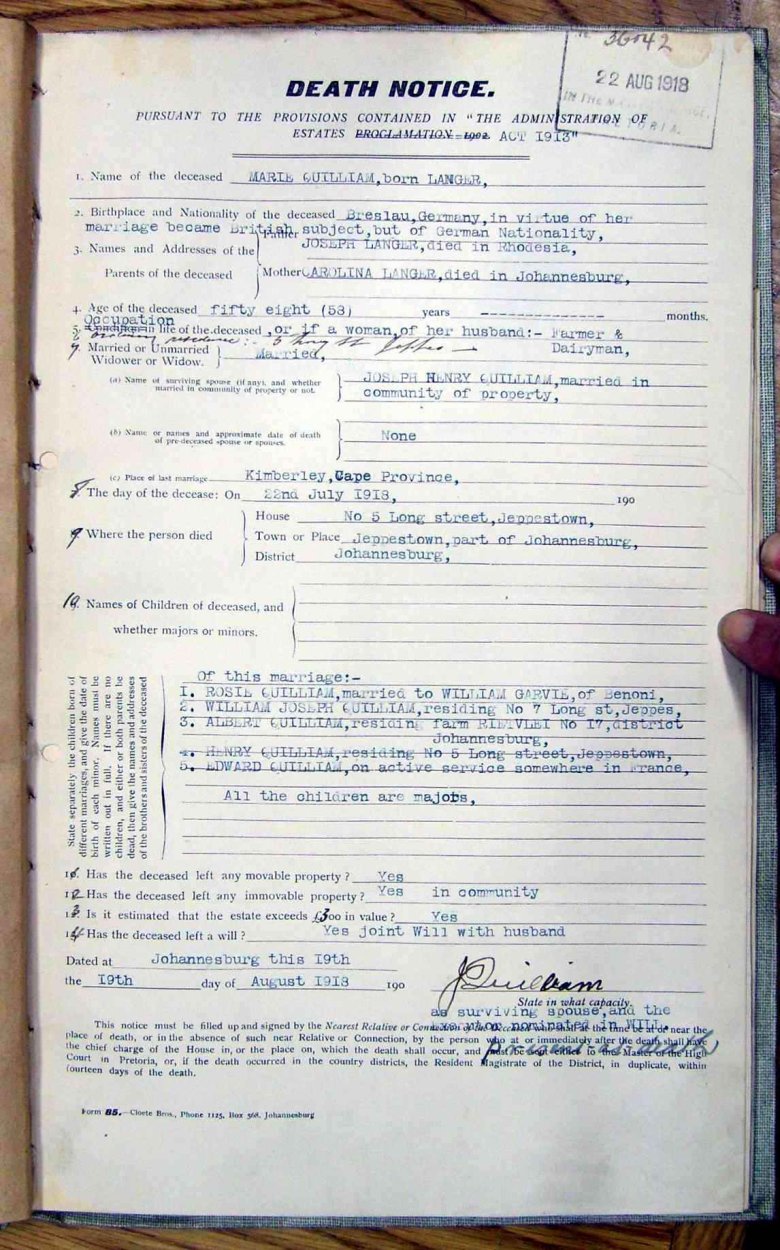 36042
22 AUG 1918
IN THE
DEATH NOTICE.
PURSUANT TO THE PROVISIONS CONTAINED IN "THE ADMINISTRATION OF
ESTATES PROCLAMATION 1902 ACT 1913"
1. Name of the deceased MARIE QUILLIAM,born LANGER,
2. Birthplace and Nationality of the deceased Breslau,Germany,in virtue of her
marriage became British subject,but of German Nationality,
3. Names and Addresses of the Parents of the deceased
Father JOSEPH LANGER,died in Rhodesia,
Mother CAROLINA LANGER,died in Johannesburg,
4. Age of the deceased fifty eight (58) years -------------- months.
Occupation
5. Condition in life of the deceased ,or if a woman,of her husband:- Farmer &
Dairyman,
6 ordinary residence:- 5 Long St Jeppes
7. Married or Unmarried Widower or Widow. Married,
(a) Name of surviving spouse (if any), and whether married in community of property or not.
JOSEPH HENRY QUILLIAM,married in
community of property,
(b) Name or names and approximate date of death of pre-deceased spouse or spouses.
None
(c) Place of last marriage Kimberley,Cape Province,
8. The day of the decease: On 22nd July 1918, 190
9. Where the person died
House No 5 Long street,Jeppestown,
Town or Place Jeppestown,part of Johannesburg,
District Johannesburg,
10. Names of Children of deceased, and
whether majors or minors.
State separately the children born of
different marriages, and give the date of
birth of each minor. Names must be
written out in full. If there are no
children, and either or both parents be
dead, then give the names and addresses
of the brothers and sisters of the deceased
Of this marriage:-
1. ROSIE QUILLIAM,married to WILLIAM GARVIE,of Benoni,
2. WILLIAM JOSEPH QUILLIAM,residing No 7 Long st,Jeppes,
3. ALBERT QUILLIAM,residing farm RIETVLEI No 17,district
Johannesburg,
4. HENRY QUILLIAM,residing No 5 Long street,Jeppestown,
5. EDWARD QUILLIAM,on active service somewhere in France,
All the children are majors,
11. Has the deceased left any movable property? Yes
12. Has the deceased left any immovable property? Yes in community
13. Is it estimated that the estate exceeds £300 in value? Yes
14. Has the deceased left a will? Yes joint Will with husband
Dated at Johannesburg this 19th
the 19th day of August 1918 190
J Quilliam
State in what capacity.
as surviving spouse,and the
nominated in WILL.
present at death
This notice must be filled up and signed by the Nearest Relative or Connection of the Deceased who shall at the time be at or near the
place of death, or in the absence of such near Relative or Connection, by the person who at or immediately after the death shall have
the chief charge of the House in, or the place on, which the death shall occur, and must be sent either to the Master of the High
Court in Pretoria, or, if the death occurred in the country districts, the Resident Magistrate of the District, in duplicate, within
fourteen days of the death.
Form 85.—Cloete Bros., Phone 1125, Box 568, Johannesburg